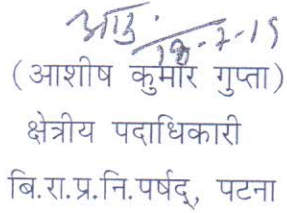 18-7-15
(आशीष कुमार गुप्ता)
क्षेत्रीय पदाधिकारी
बि.रा.प्र.नि.पर्षद्, पटना